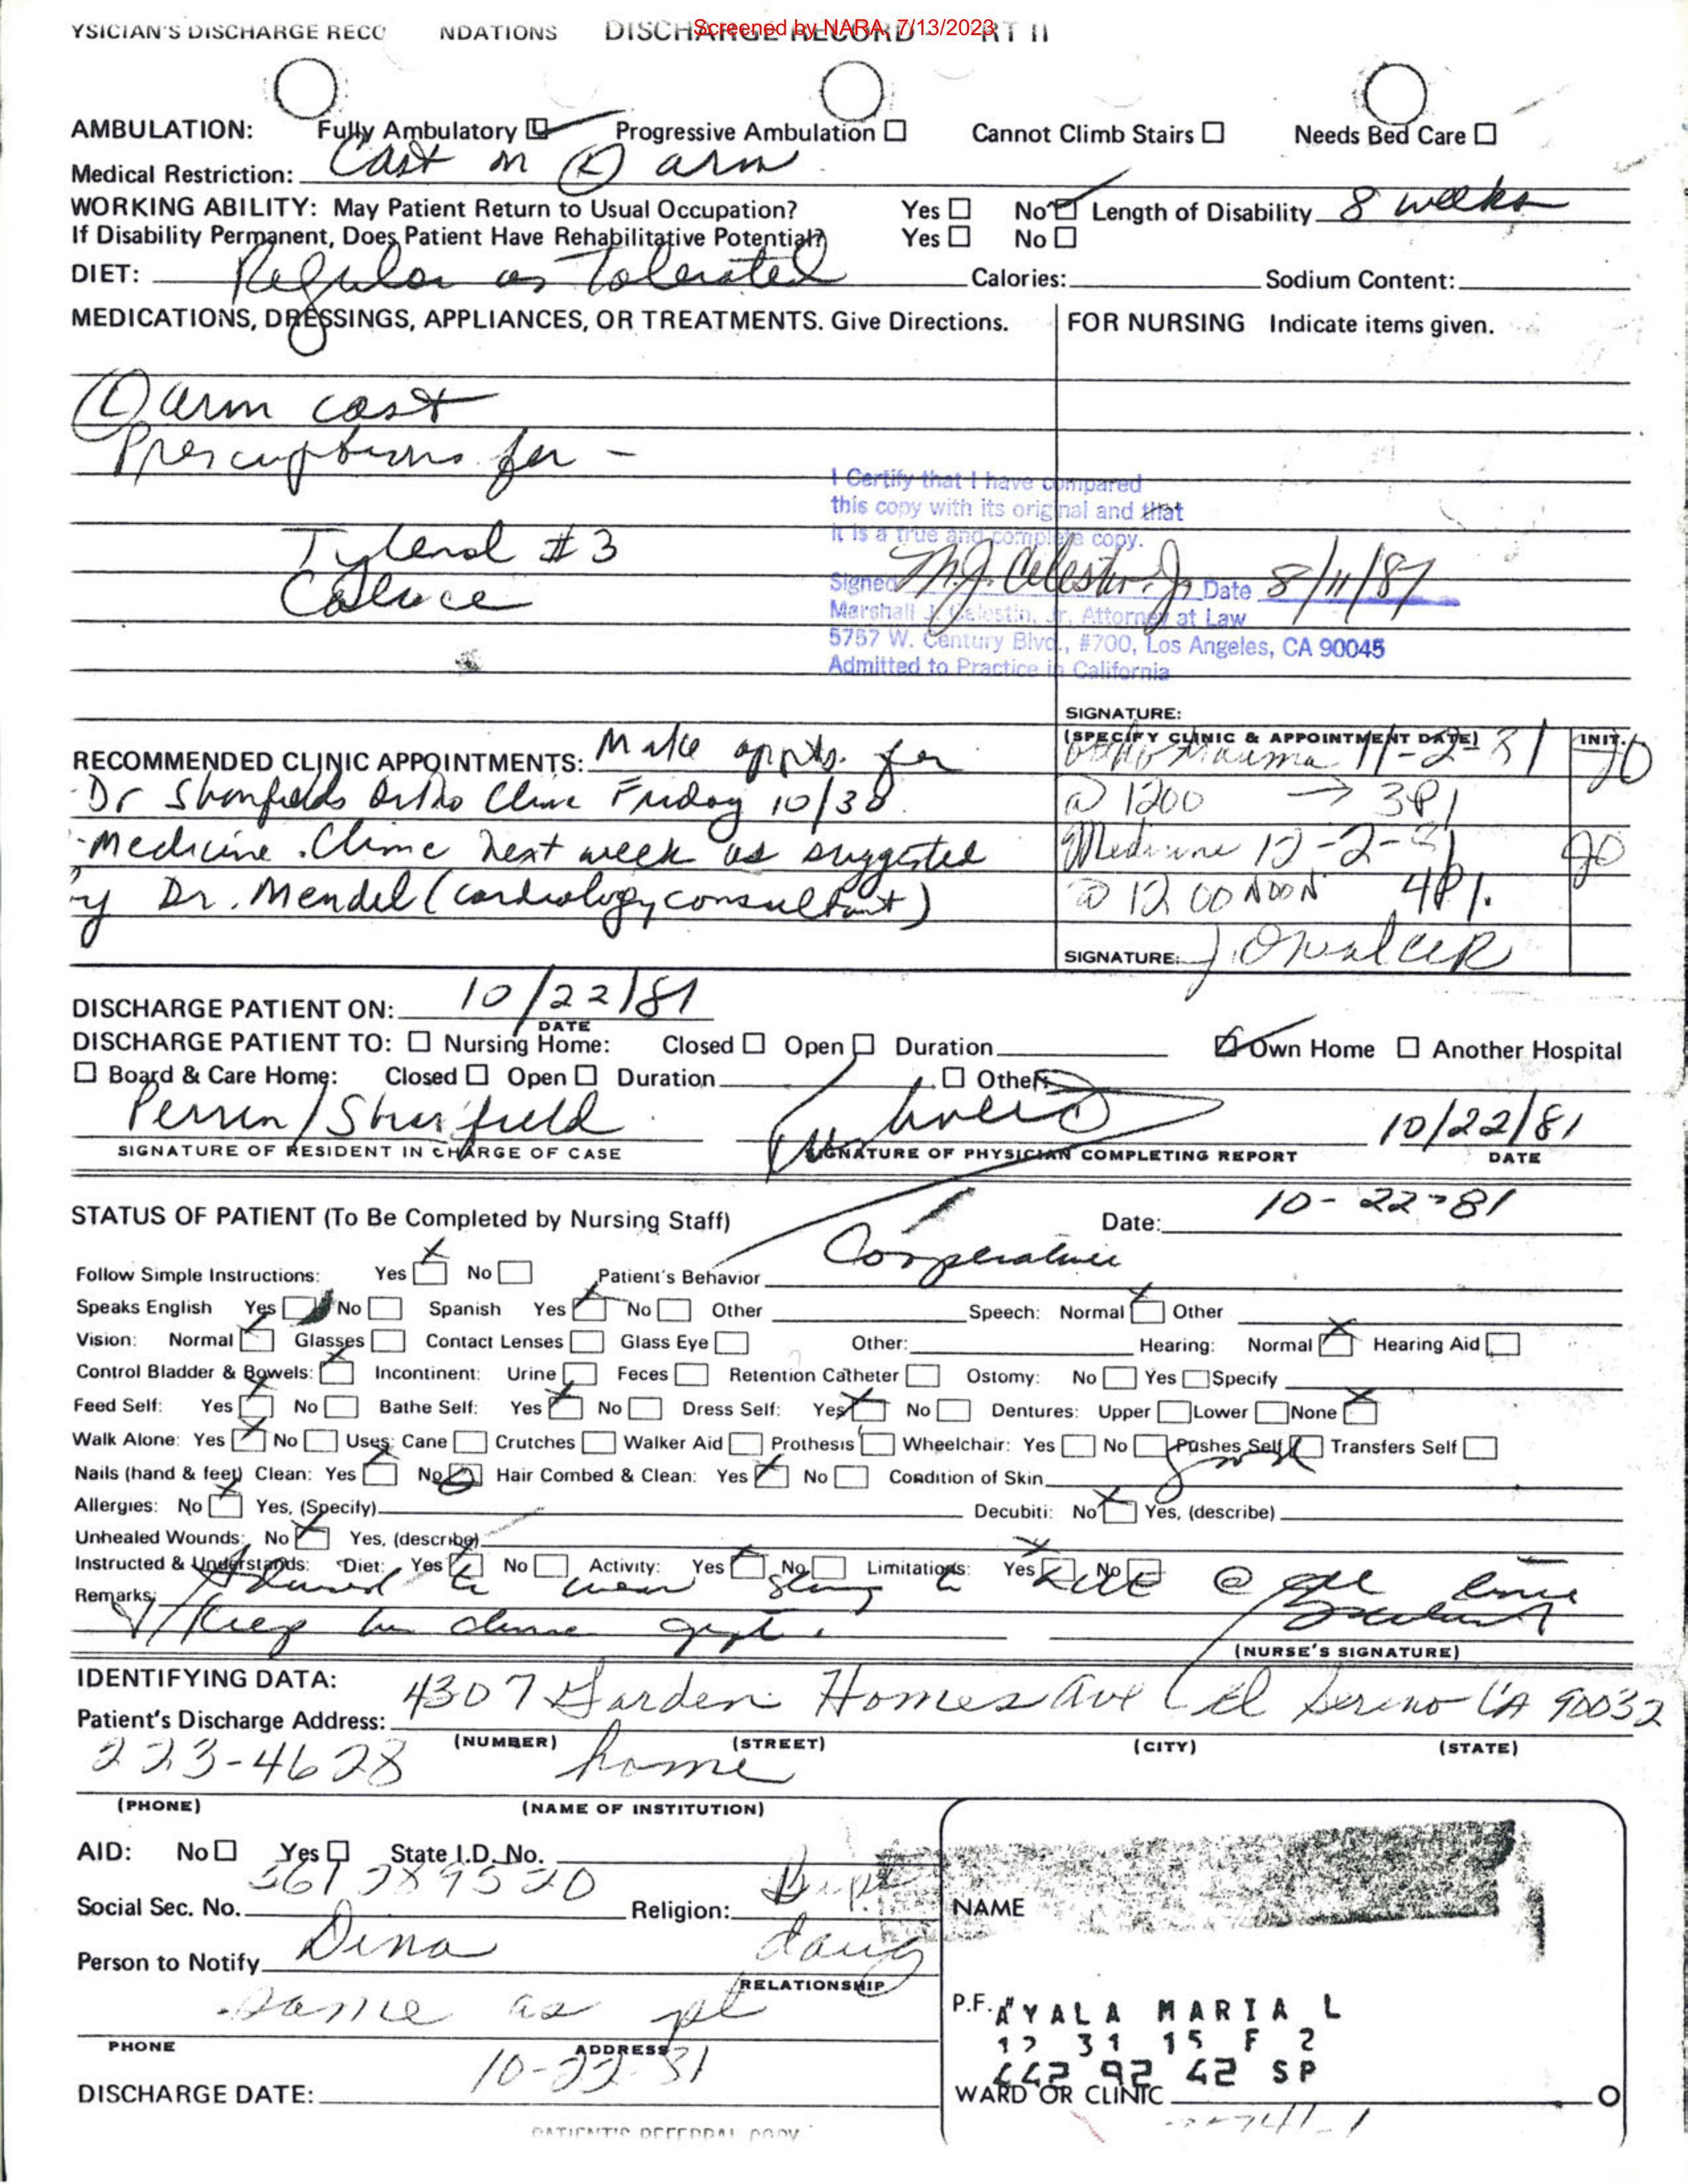 Screened by NARA, 7/13/2023
YSICIAN'S DISCHARGE RECO NDATIONS DISCHARGE RECORD RT II
AMBULATION: Fully Ambulatory Progressive Ambulation Cannot Climb Stairs Needs Bed Care
Medical Restriction: Cast on L arm
WORKING ABILITY: May Patient Return to Usual Occupation? Yes No Length of Disability 8 weeks
If Disability Permanent, Does Patient Have Rehabilitative Potential? Yes No
DIET: Regular as tolerated Calories: Sodium Content:
MEDICATIONS, DRESSINGS, APPLIANCES, OR TREATMENTS. Give Directions. FOR NURSING Indicate items given.
L arm cast
Prescriptions for -
Tylenol #3
Colace
I Certify that I have compared
this copy with its original and that
it is a true and complete copy.
Signed M.J. Celestin Jr Date 8/11/87
Marshall J. Celestin, Jr, Attorney at Law
5757 W. Century Blvd., #700, Los Angeles, CA 90045
Admitted to Practice in California
SIGNATURE:
(SPECIFY CLINIC & APPOINTMENT DATE) INIT.
RECOMMENDED CLINIC APPOINTMENTS: Make appts. for
Ortho Trauma 11-2-81 JO
- Dr Shonfields Ortho Clinic Friday 10/30
@ 1200 → 3P1
- Medicine Clinic next week as suggested
Medicine 12-2-81 JO
by Dr. Mendel (cardiology consultant)
@ 12 00 NOON 4P1.
SIGNATURE:
DISCHARGE PATIENT ON: 10/22/81
DATE
DISCHARGE PATIENT TO: Nursing Home: Closed Open Duration Own Home Another Hospital
Board & Care Home: Closed Open Duration Other
Perren/Sharfield 10/22/81
SIGNATURE OF RESIDENT IN CHARGE OF CASE SIGNATURE OF PHYSICIAN COMPLETING REPORT DATE
STATUS OF PATIENT (To Be Completed by Nursing Staff) Date: 10-22-81
Follow Simple Instructions: Yes No Patient's Behavior Cooperative
Speaks English Yes No Spanish Yes No Other Speech: Normal Other
Vision: Normal Glasses Contact Lenses Glass Eye Other: Hearing: Normal Hearing Aid
Control Bladder & Bowels: Incontinent: Urine Feces Retention Catheter Ostomy: No Yes Specify
Feed Self: Yes No Bathe Self: Yes No Dress Self: Yes No Dentures: Upper Lower None
Walk Alone: Yes No Uses: Cane Crutches Walker Aid Prothesis Wheelchair: Yes No Pushes Self Transfers Self
Nails (hand & feet) Clean: Yes No Hair Combed & Clean: Yes No Condition of Skin
Allergies: No Yes, (Specify) Decubiti: No Yes, (describe)
Unhealed Wounds: No Yes, (describe)
Instructed & Understands: Diet: Yes No Activity: Yes No Limitations: Yes No
Remarks: Advised to wear sling to LUE @ all time
Keep her clinic appt.
(NURSE'S SIGNATURE)
IDENTIFYING DATA:
Patient's Discharge Address: 4307 Garden Homes Ave El Sereno CA 90032
(NUMBER) (STREET) (CITY) (STATE)
223-4628 home
(PHONE) (NAME OF INSTITUTION)
AID: No Yes State I.D. No.
Social Sec. No. Religion:
NAME
Person to Notify Dina daug
RELATIONSHIP
same as pt
PHONE ADDRESS
P.F. AYALA MARIA L
12 31 15 F 2
442 92 42 SP
DISCHARGE DATE: 10-22-81
WARD OR CLINIC
PATIENT'S REFERRAL COPY